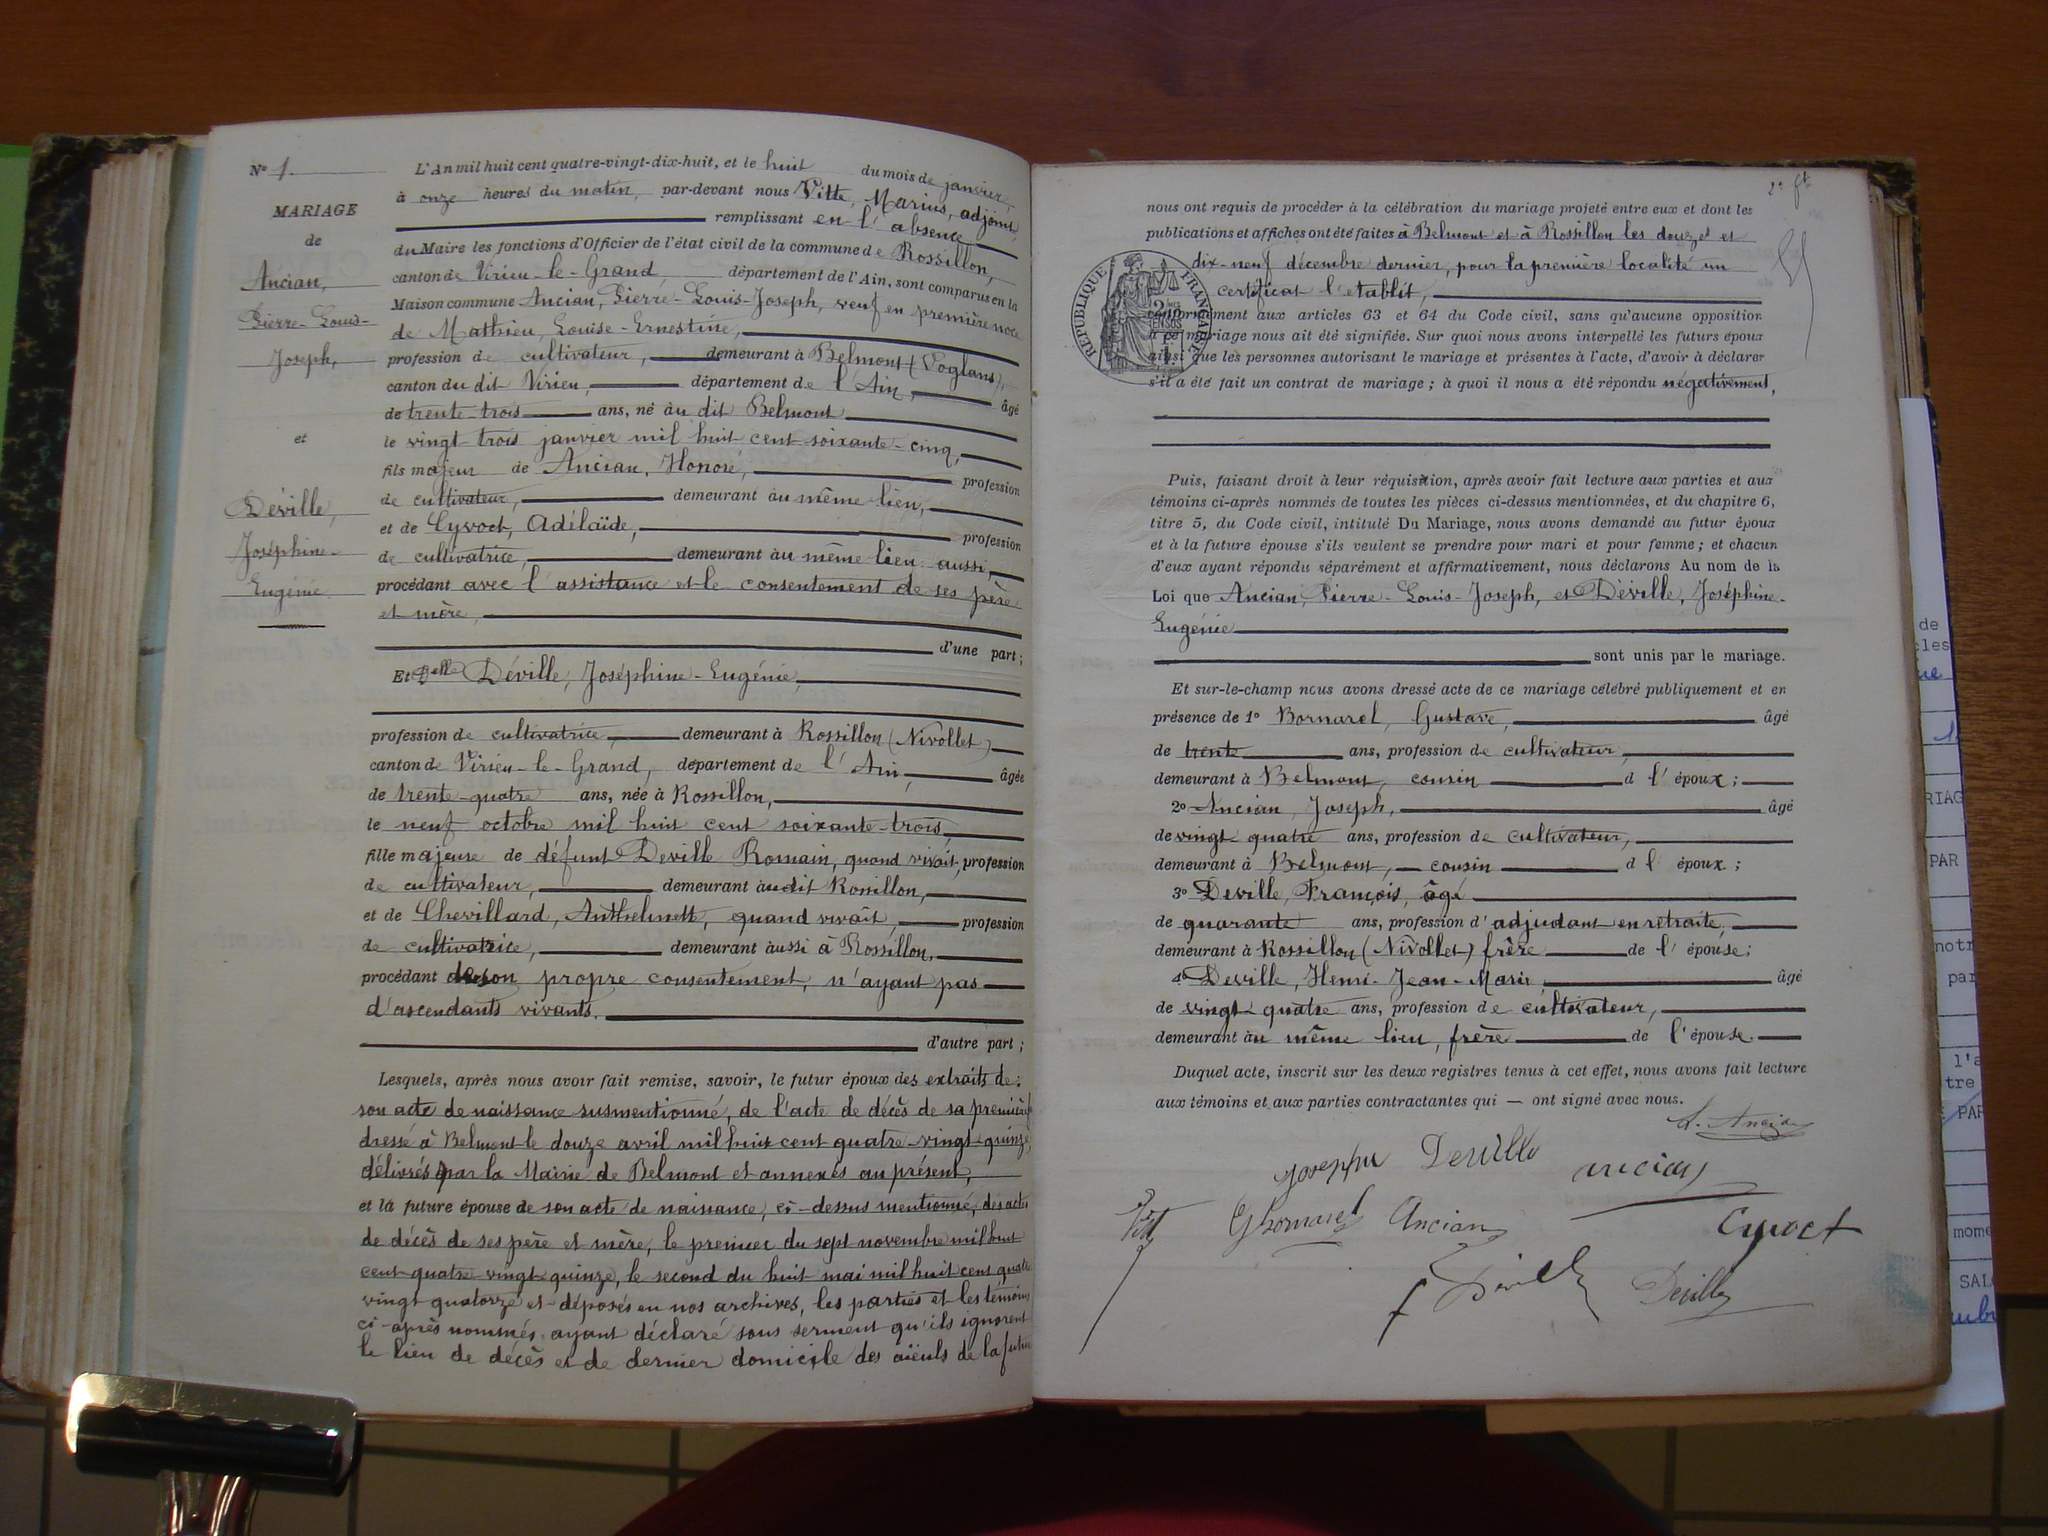 N° 1.
MARIAGE
de
Ancian,
Pierre-Louis-
Joseph,
et
Déville,
Joséphine-
Eugénie
L'An mil huit cent quatre-vingt-dix-huit, et le huit du mois de janvier,
à onze heures du matin, par-devant nous Vitte, Marius, adjoint,
remplissant en l'absence
du Maire les fonctions d'Officier de l'état civil de la commune de Rossillon,
canton de Virieu-le-Grand département de l'Ain, sont comparus en la
Maison commune Ancian, Pierre-Louis-Joseph, veuf en première noce
de Mathieu, Louise-Ernestine,
profession de cultivateur, demeurant à Belmont (Voglans),
canton du dit Virieu, département de l'Ain, âgé
de trente-trois ans, né au dit Belmont
le vingt-trois janvier mil huit cent soixante-cinq,
fils majeur de Ancian, Honoré, profession
de cultivateur, demeurant au même lieu,
et de Cyvoct, Adélaïde, profession
de cultivatrice, demeurant au même lieu aussi,
procédant avec l'assistance et le consentement de ses père
et mère,
d'une part;
Et Delle Déville, Joséphine-Eugénie,
profession de cultivatrice, demeurant à Rossillon (Nivollet)
canton de Virieu-le-Grand, département de l'Ain, âgée
de trente-quatre ans, née à Rossillon,
le neuf octobre mil huit cent soixante-trois,
fille majeure de défunt Deville Romain, quand vivait, profession
de cultivateur, demeurant audit Rossillon,
et de Chevillard, Anthelmette, quand vivait, profession
de cultivatrice, demeurant aussi à Rossillon,
procédant de son propre consentement, n'ayant pas
d'ascendants vivants.
d'autre part;
Lesquels, après nous avoir fait remise, savoir, le futur époux des extraits de:
son acte de naissance susmentionné, de l'acte de décès de sa première
dressé à Belmont le douze avril mil huit cent quatre-vingt-quinze,
délivrés par la Mairie de Belmont et annexés au présent,
et la future épouse de son acte de naissance, ci-dessus mentionné, des actes
de décès de ses père et mère, le premier du sept novembre mil huit
cent quatre-vingt-quinze, le second du huit mai mil huit cent quatre
vingt quatorze et déposés en nos archives, les parties et les témoins
ci-après nommés, ayant déclaré sous serment qu'ils ignorent
le lieu de décès et de dernier domicile des aïeuls de la future
2e ft
nous ont requis de procéder à la célébration du mariage projeté entre eux et dont les
publications et affiches ont été faites à Belmont et à Rossillon les douze et
dix-neuf décembre dernier, pour la première localité un
certificat l'établit,
RÉPUBLIQUE FRANÇAISE
conformément aux articles 63 et 64 du Code civil, sans qu'aucune opposition
à ce mariage nous ait été signifiée. Sur quoi nous avons interpellé les futurs époux
ainsi que les personnes autorisant le mariage et présentes à l'acte, d'avoir à déclarer
s'il a été fait un contrat de mariage; à quoi il nous a été répondu négativement,
Puis, faisant droit à leur réquisition, après avoir fait lecture aux parties et aux
témoins ci-après nommés de toutes les pièces ci-dessus mentionnées, et du chapitre 6,
titre 5, du Code civil, intitulé Du Mariage, nous avons demandé au futur époux
et à la future épouse s'ils veulent se prendre pour mari et pour femme; et chacun
d'eux ayant répondu séparément et affirmativement, nous déclarons Au nom de la
Loi que Ancian, Pierre-Louis-Joseph, et Déville, Joséphine-
Eugénie
sont unis par le mariage.
Et sur-le-champ nous avons dressé acte de ce mariage célébré publiquement et en
présence de 1° Bornarel, Gustave, âgé
de trente ans, profession de cultivateur,
demeurant à Belmont, cousin d l'époux;
2° Ancian, Joseph, âgé
de vingt quatre ans, profession de cultivateur,
demeurant à Belmont, cousin d l'époux;
3° Deville, François, âgé
de quarante ans, profession d'adjudant en retraite,
demeurant à Rossillon (Nivollet) frère de l'épouse;
4° Deville, Henri-Jean-Marie, âgé
de vingt quatre ans, profession de cultivateur,
demeurant au même lieu, frère de l'épouse.
Duquel acte, inscrit sur les deux registres tenus à cet effet, nous avons fait lecture
aux témoins et aux parties contractantes qui — ont signé avec nous.
Ancian
Josephe Deville
Ancian
GBornarel Ancian
Cyvoct
F Déville
Deville